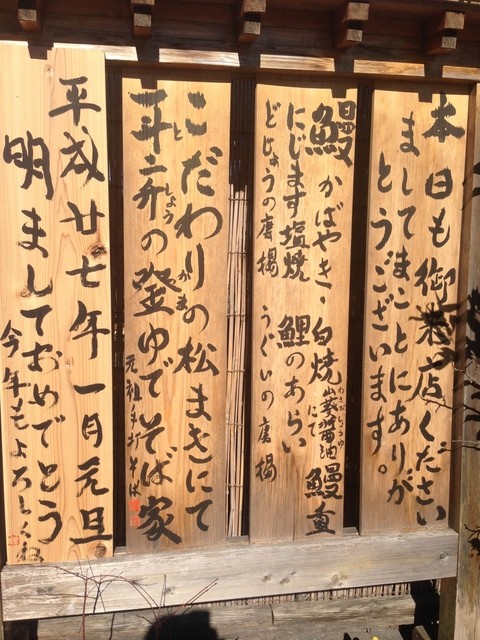 本日も御来店ください
ましてまことにありが
とうございます。
鰻かばやき・白焼山葵醤油にて鰻重
わさびじょうゆ
にじます塩焼 鯉のあらい
どじょうの唐揚 うぐいの唐揚
こだわりの松まきにて
一斗二升の釜ゆでそば家
と しょう かま
元祖手打そば
平成廿七年一月元旦
明ましておめでとう
今年もよろしくね